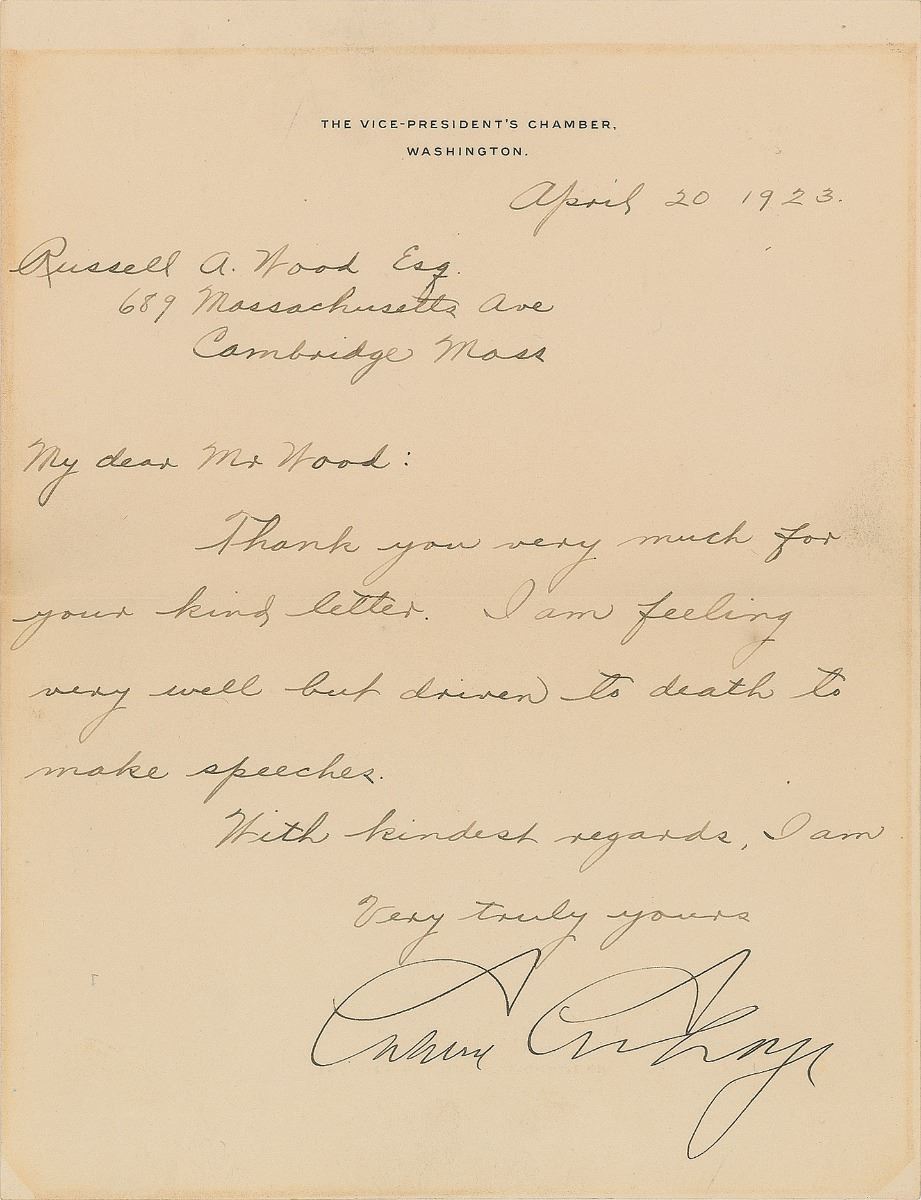 THE VICE-PRESIDENT'S CHAMBER,
WASHINGTON.
April 20 1923.
Russell A. Wood Esq.
689 Massachusetts Ave
Cambridge Mass
My dear Mr Wood:
Thank you very much for
your kind letter. I am feeling
very well but driven to death to
make speeches.
With kindest regards, I am
Very truly yours
Calvin Coolidge